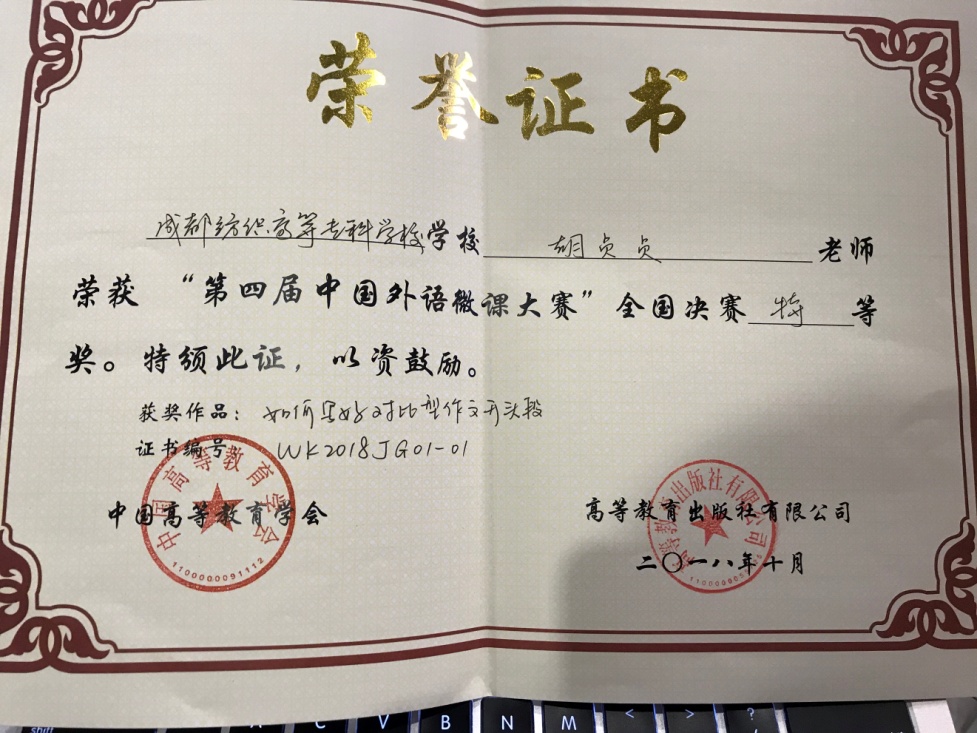 荣誉证书
成都纺织高等专科学校学校 胡贞贞 老师
荣获 “第四届中国外语微课大赛”全国决赛 特 等
奖。特颁此证，以资鼓励。
获奖作品：如何写好对比型作文开头段
证书编号 WK2018JG01-01
中国高等教育学会
中国高等教育学会
1100000091112
高等教育出版社有限公司
高等教育出版社有限公司
二〇一八年十月
shift
C V B N M < > ?